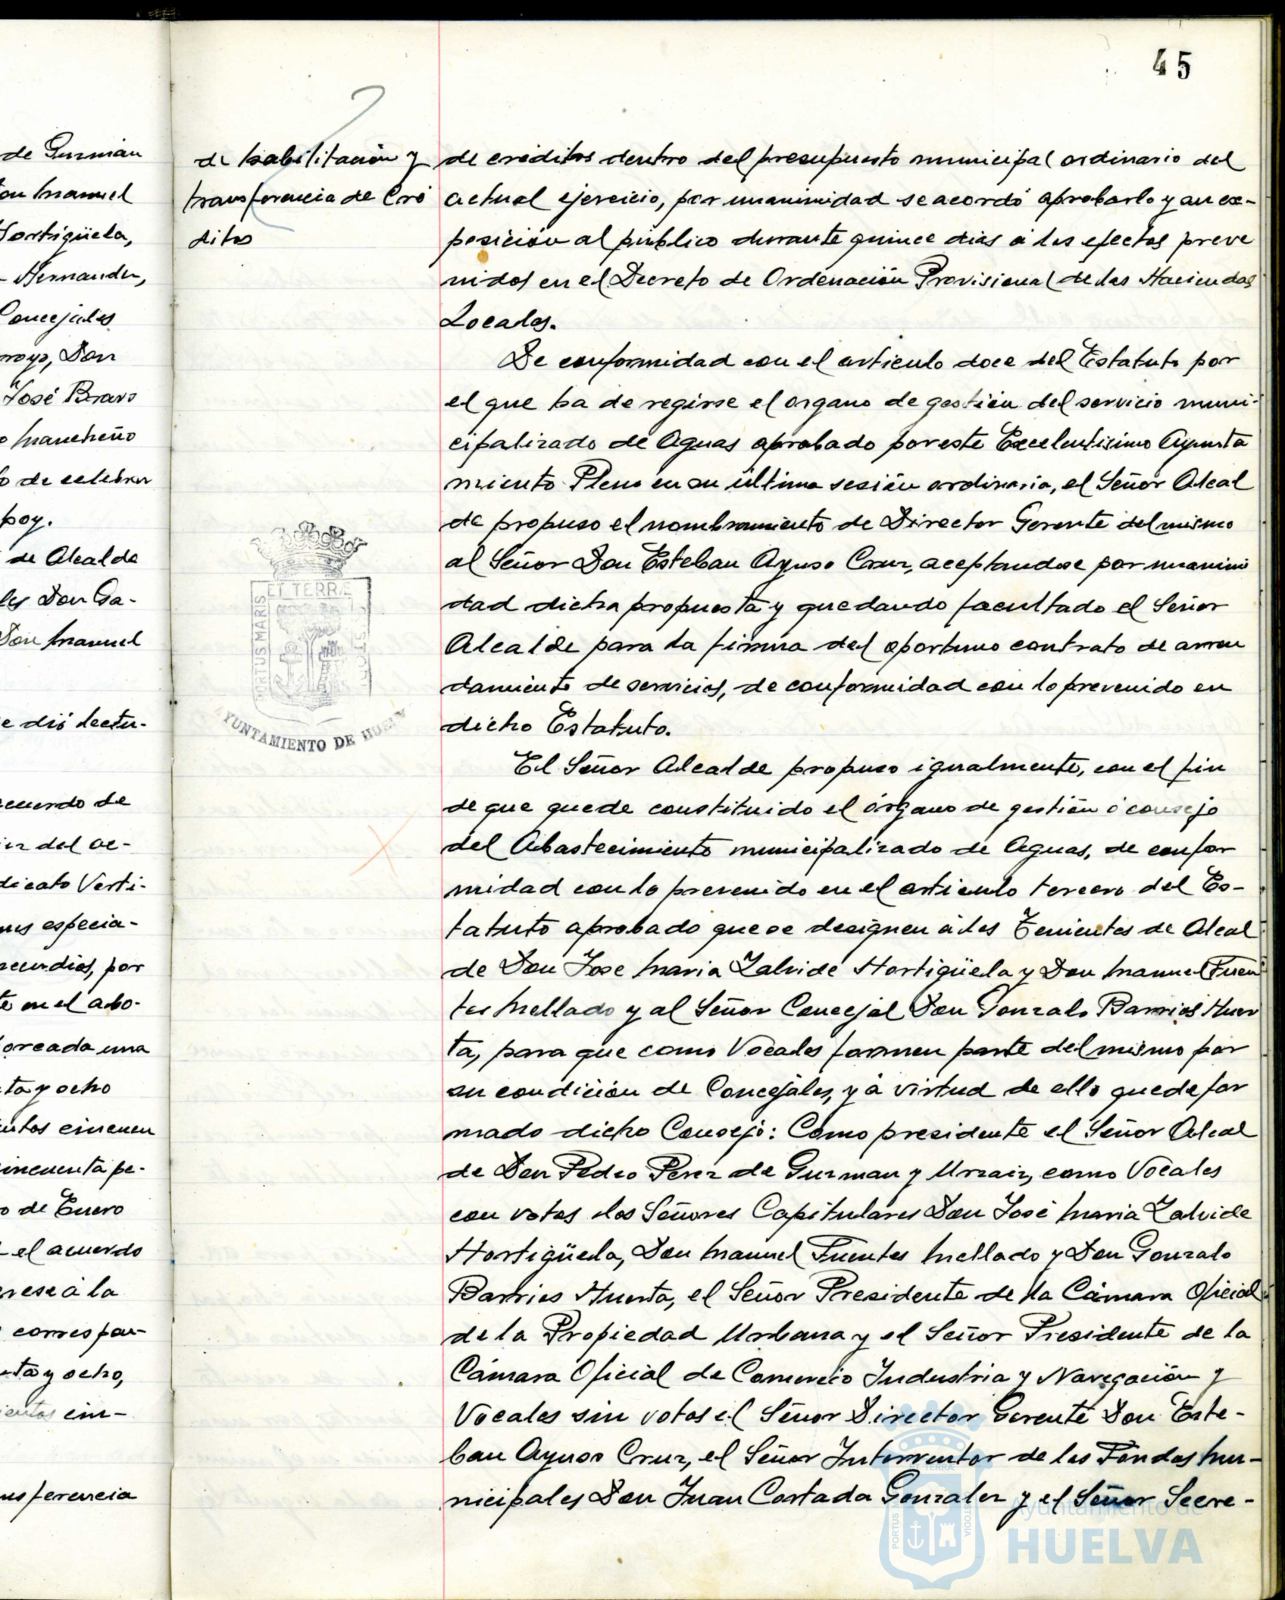 45
de Guzmán
Don Manuel
Hortigüela,
Hernandez,
Concejales
rroyo, Don
José Bravo
o Mancheño
o de celebrar
hoy.
de Alcalde
les Don Ga-
Don Manuel
e dió lectu-
acuerdo de
del ac-
dicato Verti-
nes especia-
cendios, por
te en el abo-
orcada una
ta y ocho
entos cincuen
incuenta pe-
o de Enero
el acuerdo
rese á la
correspon-
nta y ocho,
cientos cin-
nsferencia
de habilitación y
transferencia de Cré
ditos
de créditos dentro del presupuesto municipal ordinario del
actual ejercicio, por unanimidad se acordó aprobarlo y su ex-
posición al público durante quince dias á los efectos preve
nidos en el Decreto de Ordenación Provisional de las Haciendas
Locales.
De conformidad con el articulo doce del Estatuto por
el que ha de regirse el organo de gestión del servicio muni-
cipalizado de Aguas aprobado por este Excelentisimo Ayunta
miento Pleno en su última sesión ordinaria, el Señor Alcal
de propuso el nombramiento de Director Gerente del mismo
al Señor Don Esteban Ayuso Cruz, aceptandose por unanimi
dad dicha propuesta y quedando facultado el Señor
Alcalde para la firma del oportuno contrato de arren
damiento de servicios, de conformidad con lo prevenido en
dicho Estatuto.
El Señor Alcalde propuso igualmente, con el fin
de que quede constituido el órgano de gestión ó consejo
del Abastecimiento municipalizado de Aguas, de confor
midad con lo prevenido en el articulo tercero del Es-
tatuto aprobado que se designen á los Tenientes de Alcal
de Don Jose Maria Zalvide Hortigüela y Don Manuel Fuen
tes Mellado y al Señor Concejal Don Gonzalo Barrios Huer
ta, para que como Vocales formen parte del mismo por
su condición de Concejales, y á virtud de ello quede for
mado dicho Consejo: Como presidente el Señor Alcal
de Don Pedro Perez de Guzman y Urzaiz, como Vocales
con votos los Señores Capitulares Don José Maria Zalvide
Hortigüela, Don Manuel Fuentes Mellado y Don Gonzalo
Barrios Huerta, el Señor Presidente de la Cámara Oficial
de la Propiedad Urbana y el Señor Presidente de la
Cámara Oficial de Comercio Industria y Navegación y
Vocales sin votos el Señor Director Gerente Don Este-
ban Ayuso Cruz, el Señor Interventor de los Fondos Mu-
nicipales Don Juan Cortada Gonzalez y el Señor Secre-
ET TERRÆ
PORTUS MARIS
AYUNTAMIENTO DE HUELVA
Ayuntamiento de
HUELVA